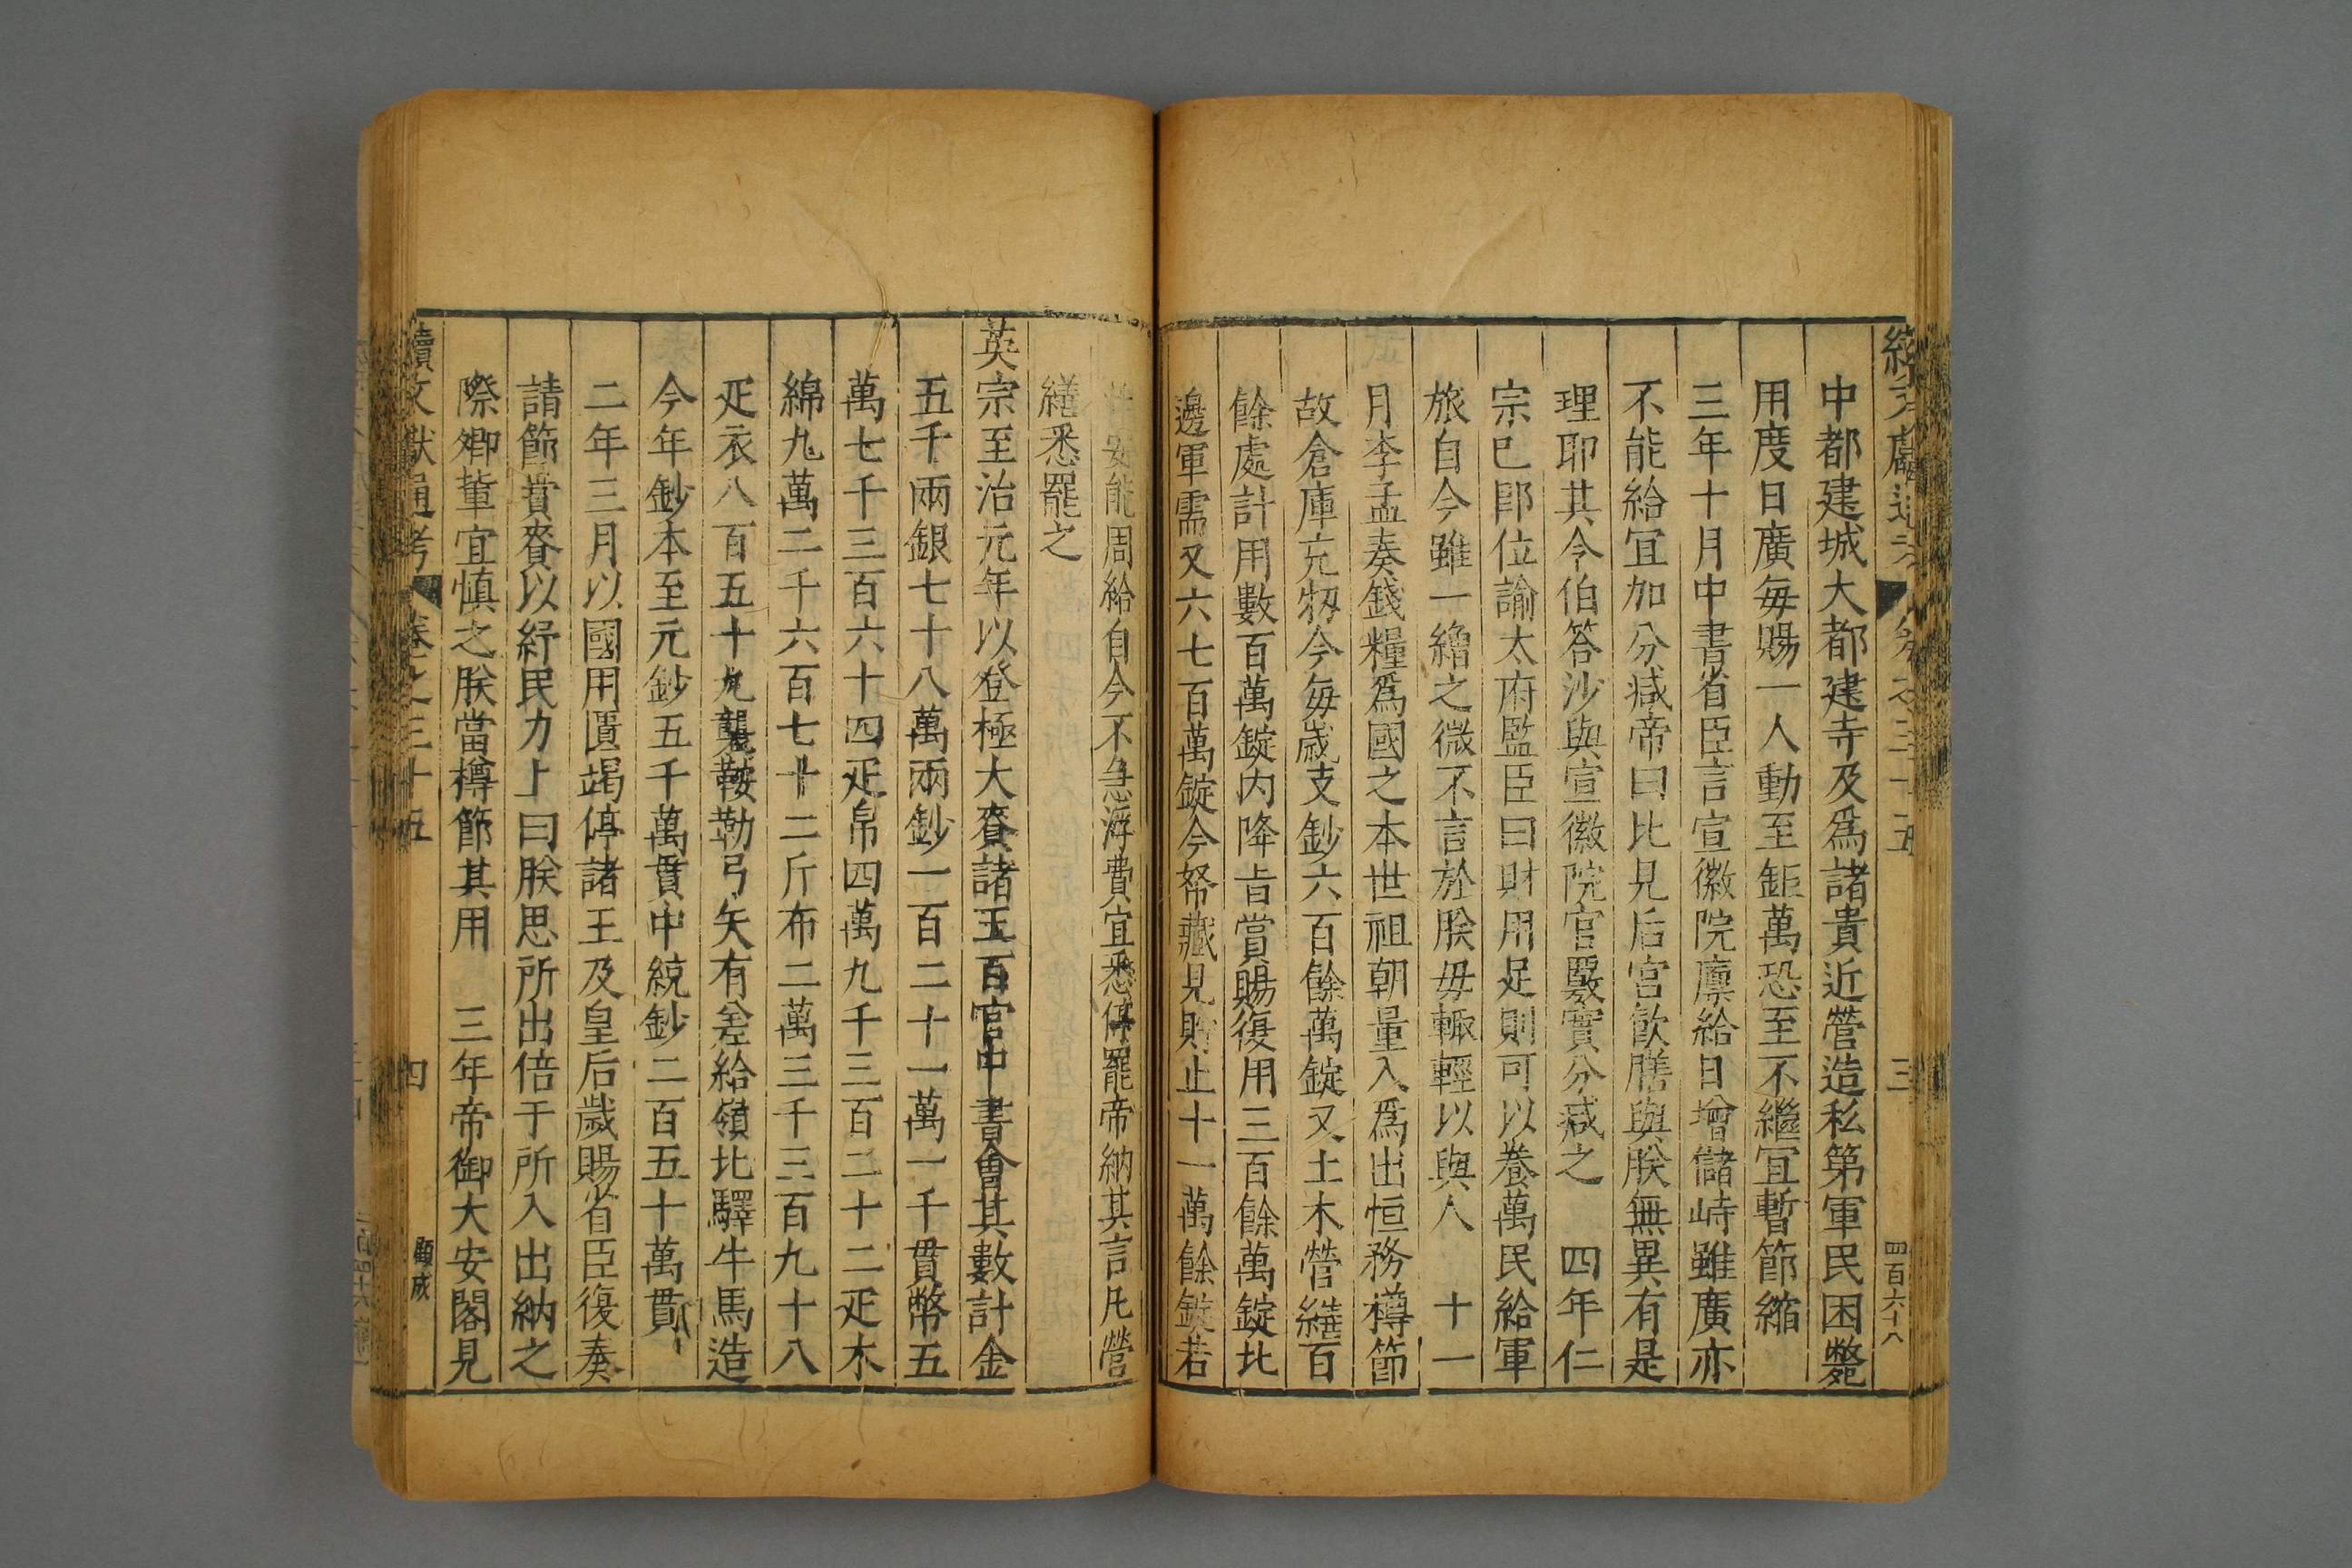 中都建城大都建寺及爲諸貴近營造私第軍民困斃
用度日廣每賜一人動至鉅萬恐至不繼宜暫節縮
三年十月中書省臣言宣徽院廪給日增儲峙雖廣亦
不能給冝加分减帝曰比見后宫飲膳與朕無異有是
理耶其令伯答沙與宣徽院官覈實分减之　四年仁
宗已即位諭太府監臣曰財用足則可以養萬民給軍
旅自今雖一繒之微不言於朕毋輙輕以與人　十一
月李孟奏錢糧爲國之本世祖朝量入爲出恒務樽節
故倉庫充牣今每歲支鈔六百餘萬錠又土木營繕百
餘處計用數百萬錠内降旨賞賜復用三百餘萬錠北
邊軍需又六七百萬錠今帑藏見貯止十一萬餘錠若
安能周給自今不急浮費宜悉停罷帝納其言凡營
繕悉罷之
英宗至治元年以登極大賚諸王百官中書會其數計金
五千兩銀七十八萬兩鈔一百二十一萬一千貫幣五
萬七千三百六十四疋帛四萬九千三百二十二疋木
綿九萬二千六百七十二斤布二萬三千三百九十八
疋衣八百五十九襲鞍勒弓矢有差給嶺北驛牛馬造
今年鈔本至元鈔五千萬貫中統鈔二百五十萬貫
二年三月以國用匱竭停諸王及皇后歲賜省臣復奏
請節賞賚以紓民力上曰朕思所出倍于所入出納之
際卿輩宜慎之朕當樽節其用　三年帝御大安閣見
續文獻通考　卷之三十五　四　顧成